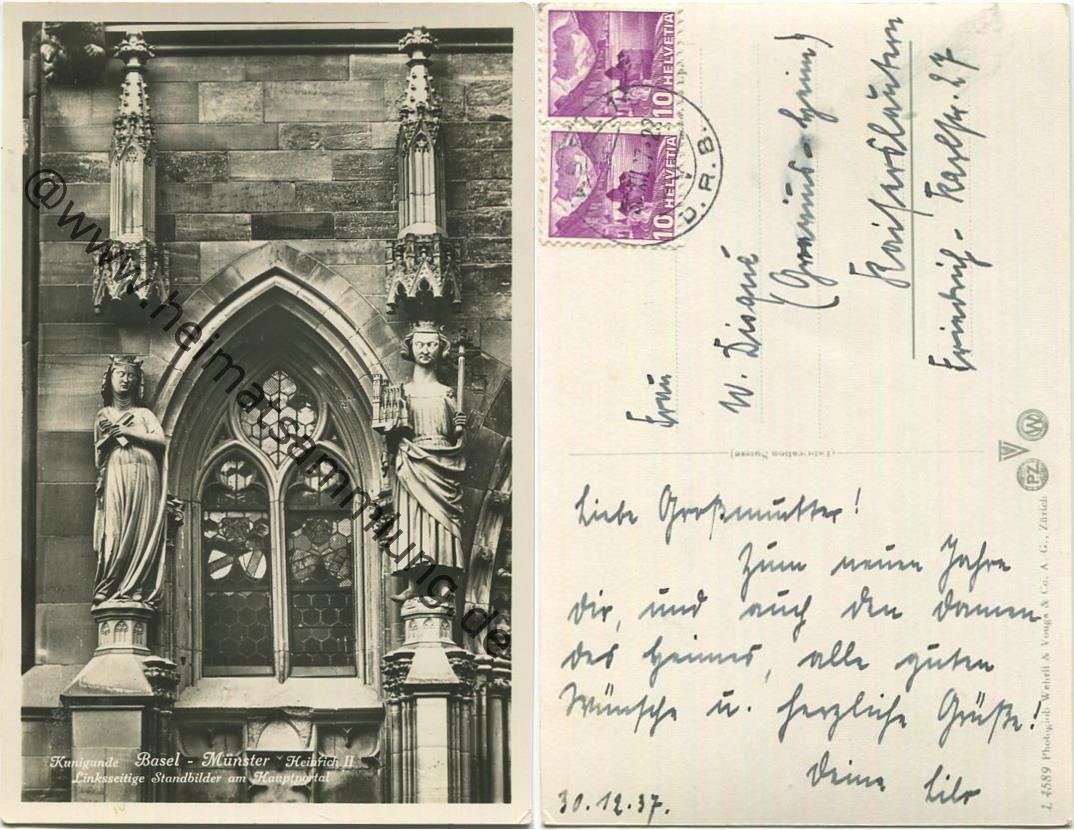 Kunigunde Basel - Münster Heinrich II
Linksseitige Standbilder am Hauptportal
@www.heimatsammlung.de
10 HELVETIA
10 HELVETIA
D.R.B.
Frau
W. Disqué
Kaiserslautern
Friedrich-Karlstr. 27
(Fabrication Suisse)
PZ
W
Liebe Großmutter!
Zum neuen Jahre
dir, und auch den Damen
des Heimes, alle guten
Wünsche u. herzliche Grüße!
Deine Lilo
30.12.37.
L 4589 Photoglob-Wehrli & Vouga & Co. A. G., Zürich